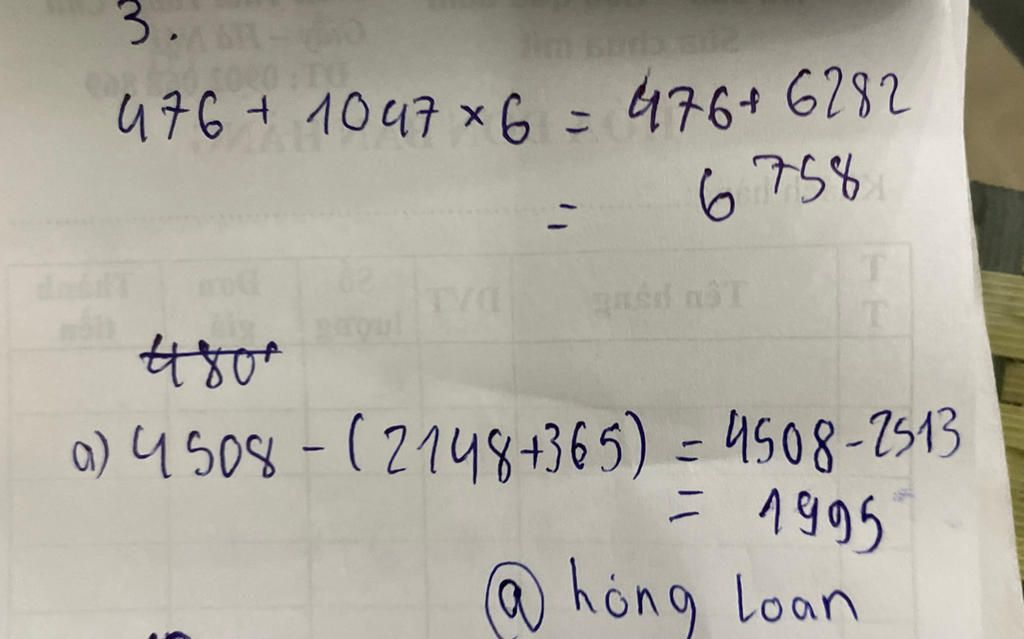 3.
476 + 1047 × 6 = 476 + 6282
= 6758
480
a) 4508 - (2148+365) = 4508 - 2513
= 1995
@ hồng loan